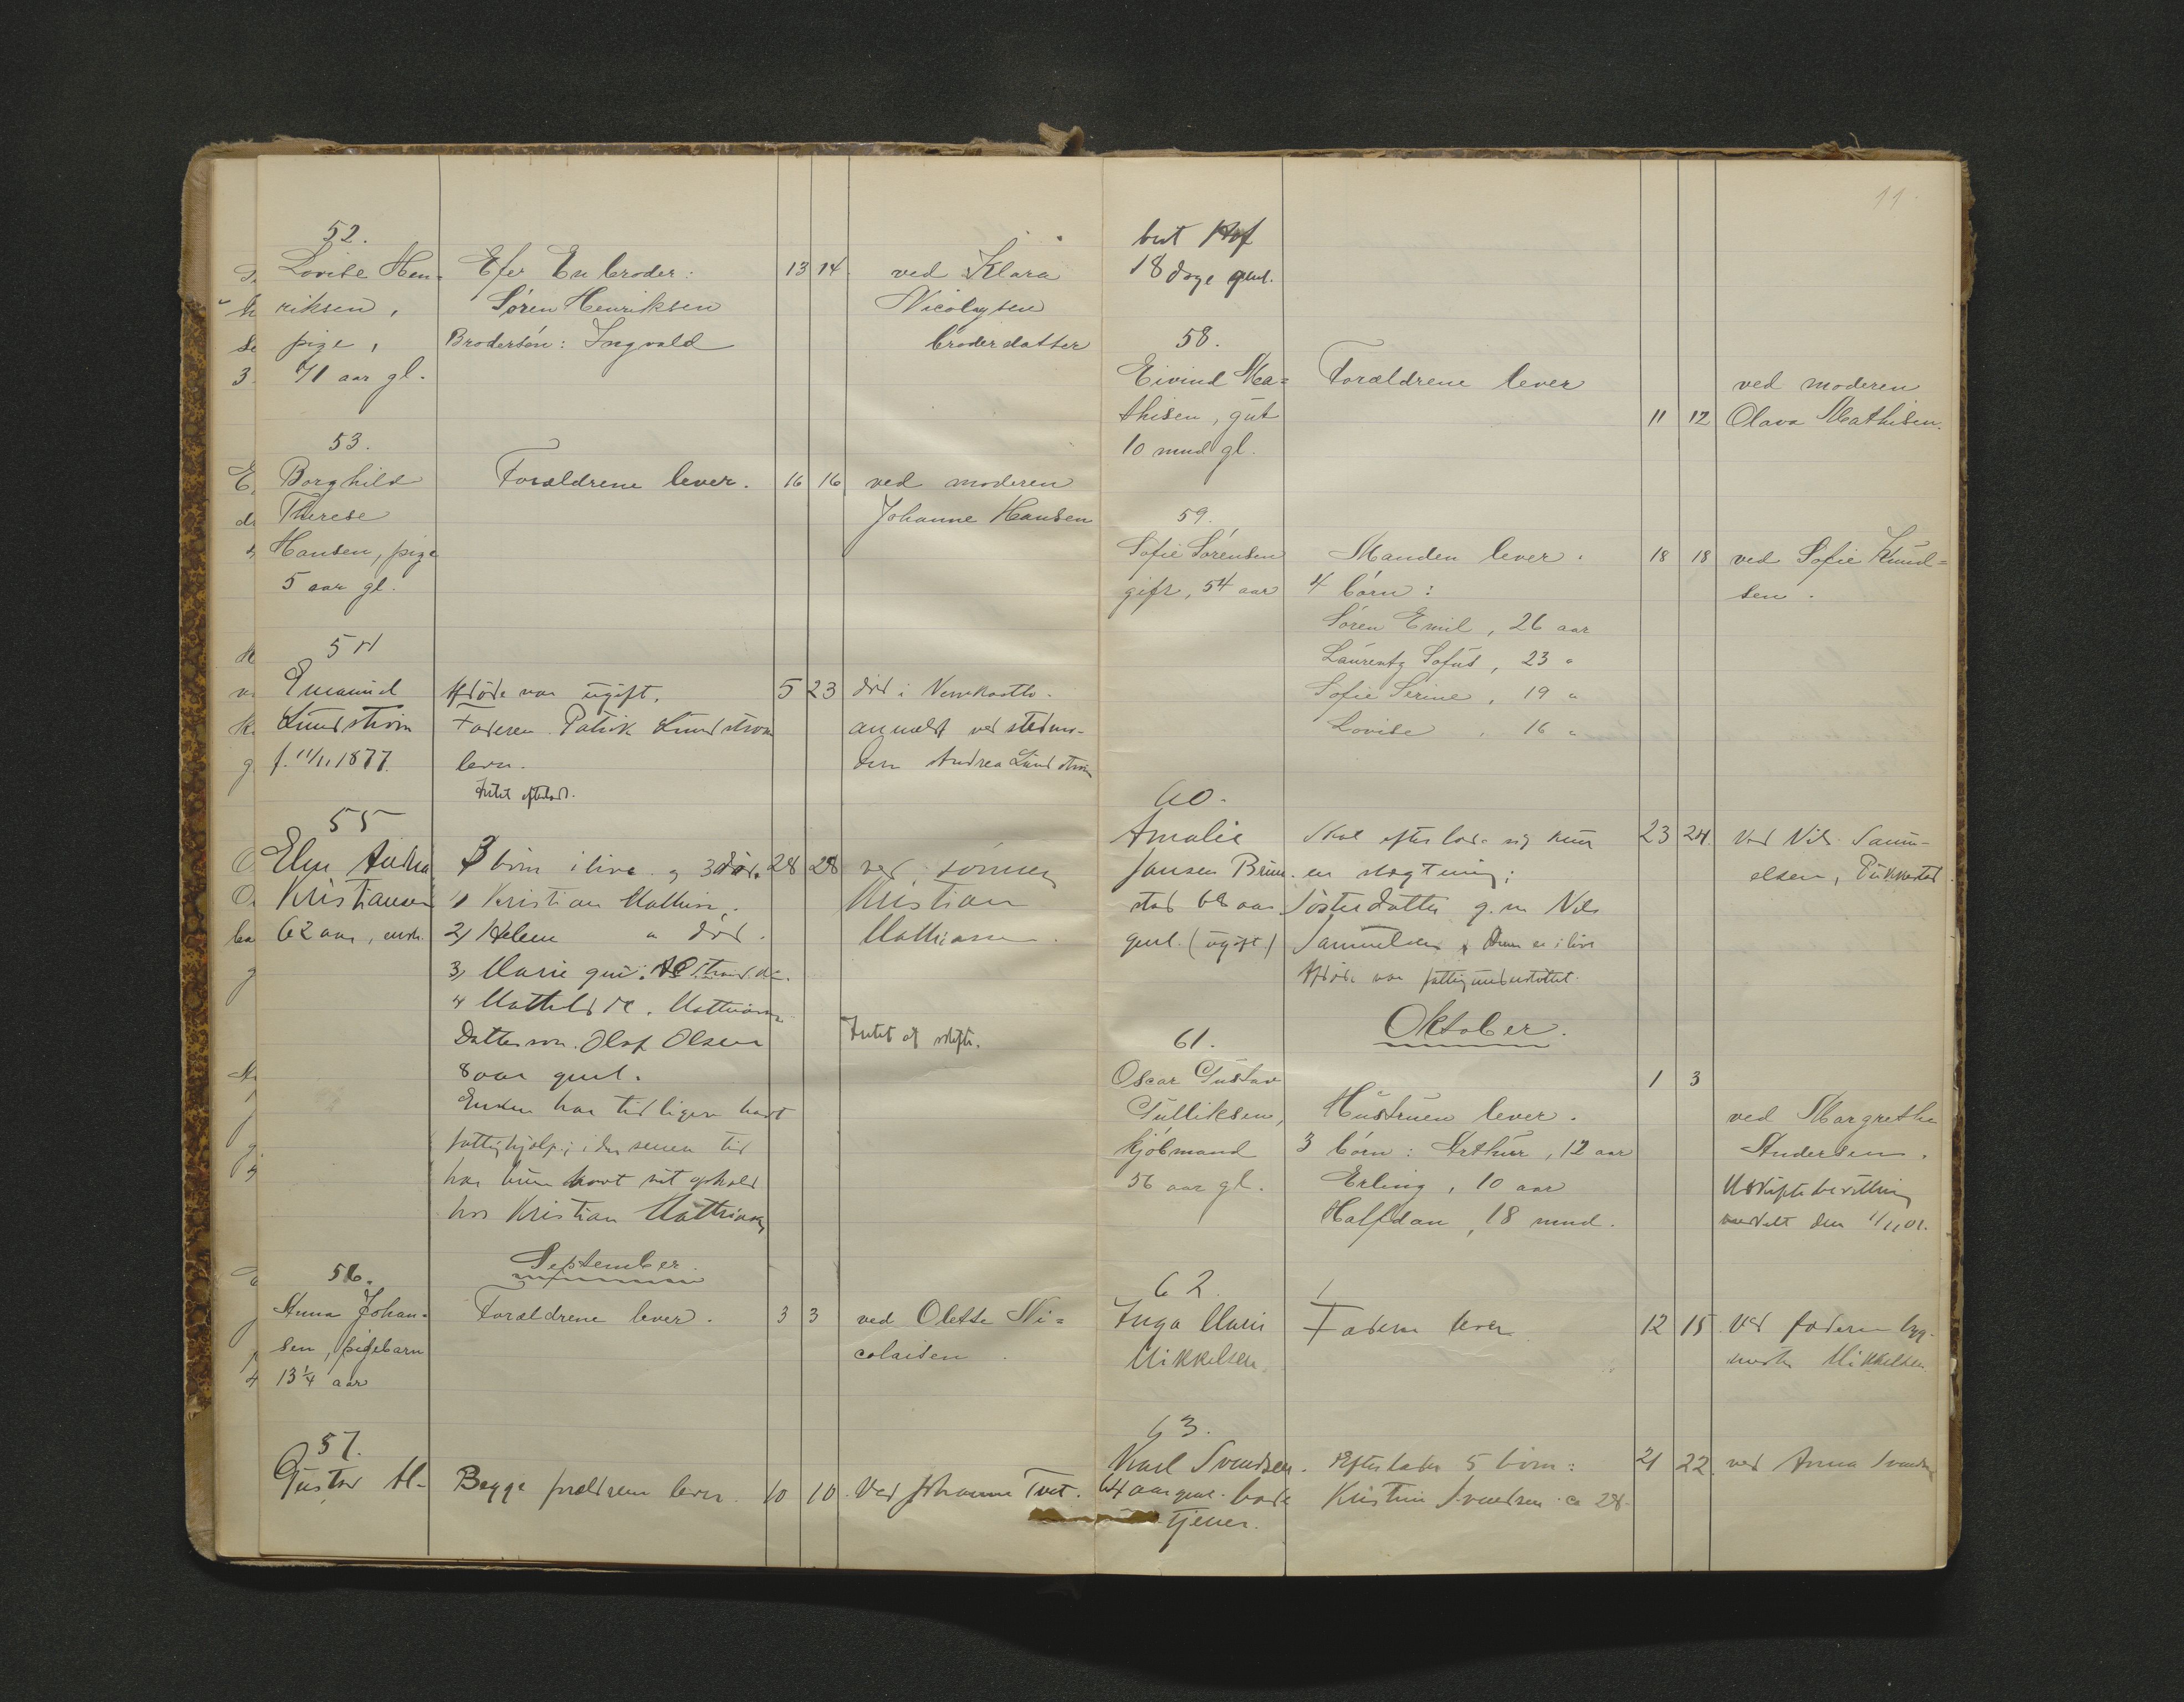 52.
Lovise Hen-
riksen,
pige,
71 aar gl.
Efer En broder:
Søren Henriksen
Brodersøn: Ingvald
13 14
ved Klara
Nicolaysen
broderdatter
53.
Borghild
Therese
Hansen, pige
5 aar gl.
Forældrene lever.
16 16
ved moderen
Johanne Hansen
54
Emanuel
Lundstrøm
f. 11/11 1877.
Afdøde var ugift.
Faderen Patrik Lundstrøm
lever.
Intet efterladt.
5 23
død i
anmeldt ved stedmo-
deren Andrea Lundstrøm
55
Elen Andrea
Kristiansen
62 aar, enke.
3 børn i live og 3 døde
1) Kristian Mathisen
2) Helene " død.
3) Marie
4 Mathilde Mathiasen
Dattersøn. Olaf Olsen
8 aar gml.
Enken har tidligere havt
fattighjælp; i den senere tid
har hun havt sit ophold
hos Kristian Mathiasen
28 28
ved sønnen
Kristian
Mathiasen.
Intet at skifte.
September.
56.
Anna Johan-
sen, pigebarn
13 1/4 aar
Forældrene lever.
3 3
ved Olette Ni-
colaisen.
57.
Gustav Al-
Begge forældrene lever.
10 10.
Ved Johanne Tvet.
11.
bert Hof
18 dage gml.
58.
Eivind Ma-
thisen, gut
10 mnd gl.
Forældrene lever
11 12
ved moderen
Olava Mathisen.
59.
Sofie Sørensen
gift, 54 aar
Manden lever.
4 børn:
Søren Emil, 26 aar
Laurentz Sofus, 23 "
Sofie Serine, 19 "
Lovise, 16 "
18 18
ved Sofie Knud-
sen.
60.
Amalie
Jansen Brun-
stad 68 aar
gml. (ugift.)
Skal efterlade sig kun
en slægtning:
Søsterdatter g. m. Nils
Samuelsen, Denne er i live
Afdøde var fattigunderstøttet.
23 24.
Ved Nils Samu-
elsen,
Oktober.
61.
Oscar Gustav
Gulliksen,
kjøbmand
56 aar gl.
Hustruen lever.
3 børn: Arthur, 12 aar
Erling, 10 aar
Halfdan, 18 mnd.
1 3
ved Margrethe
Andersen.
Uskiftebevilling
meddelt den 11/11 01.
62.
Inga Marie
Mikkelsen.
Faderen lever
12 15
Ved faderen byg-
mester Mikkelsen
63.
Karl Svendsen.
64 aar gml. bade-
tjener.
Efterlader 5 børn:
Kristine Svendsen ca 28.
21 22.
ved Anna Svendsen